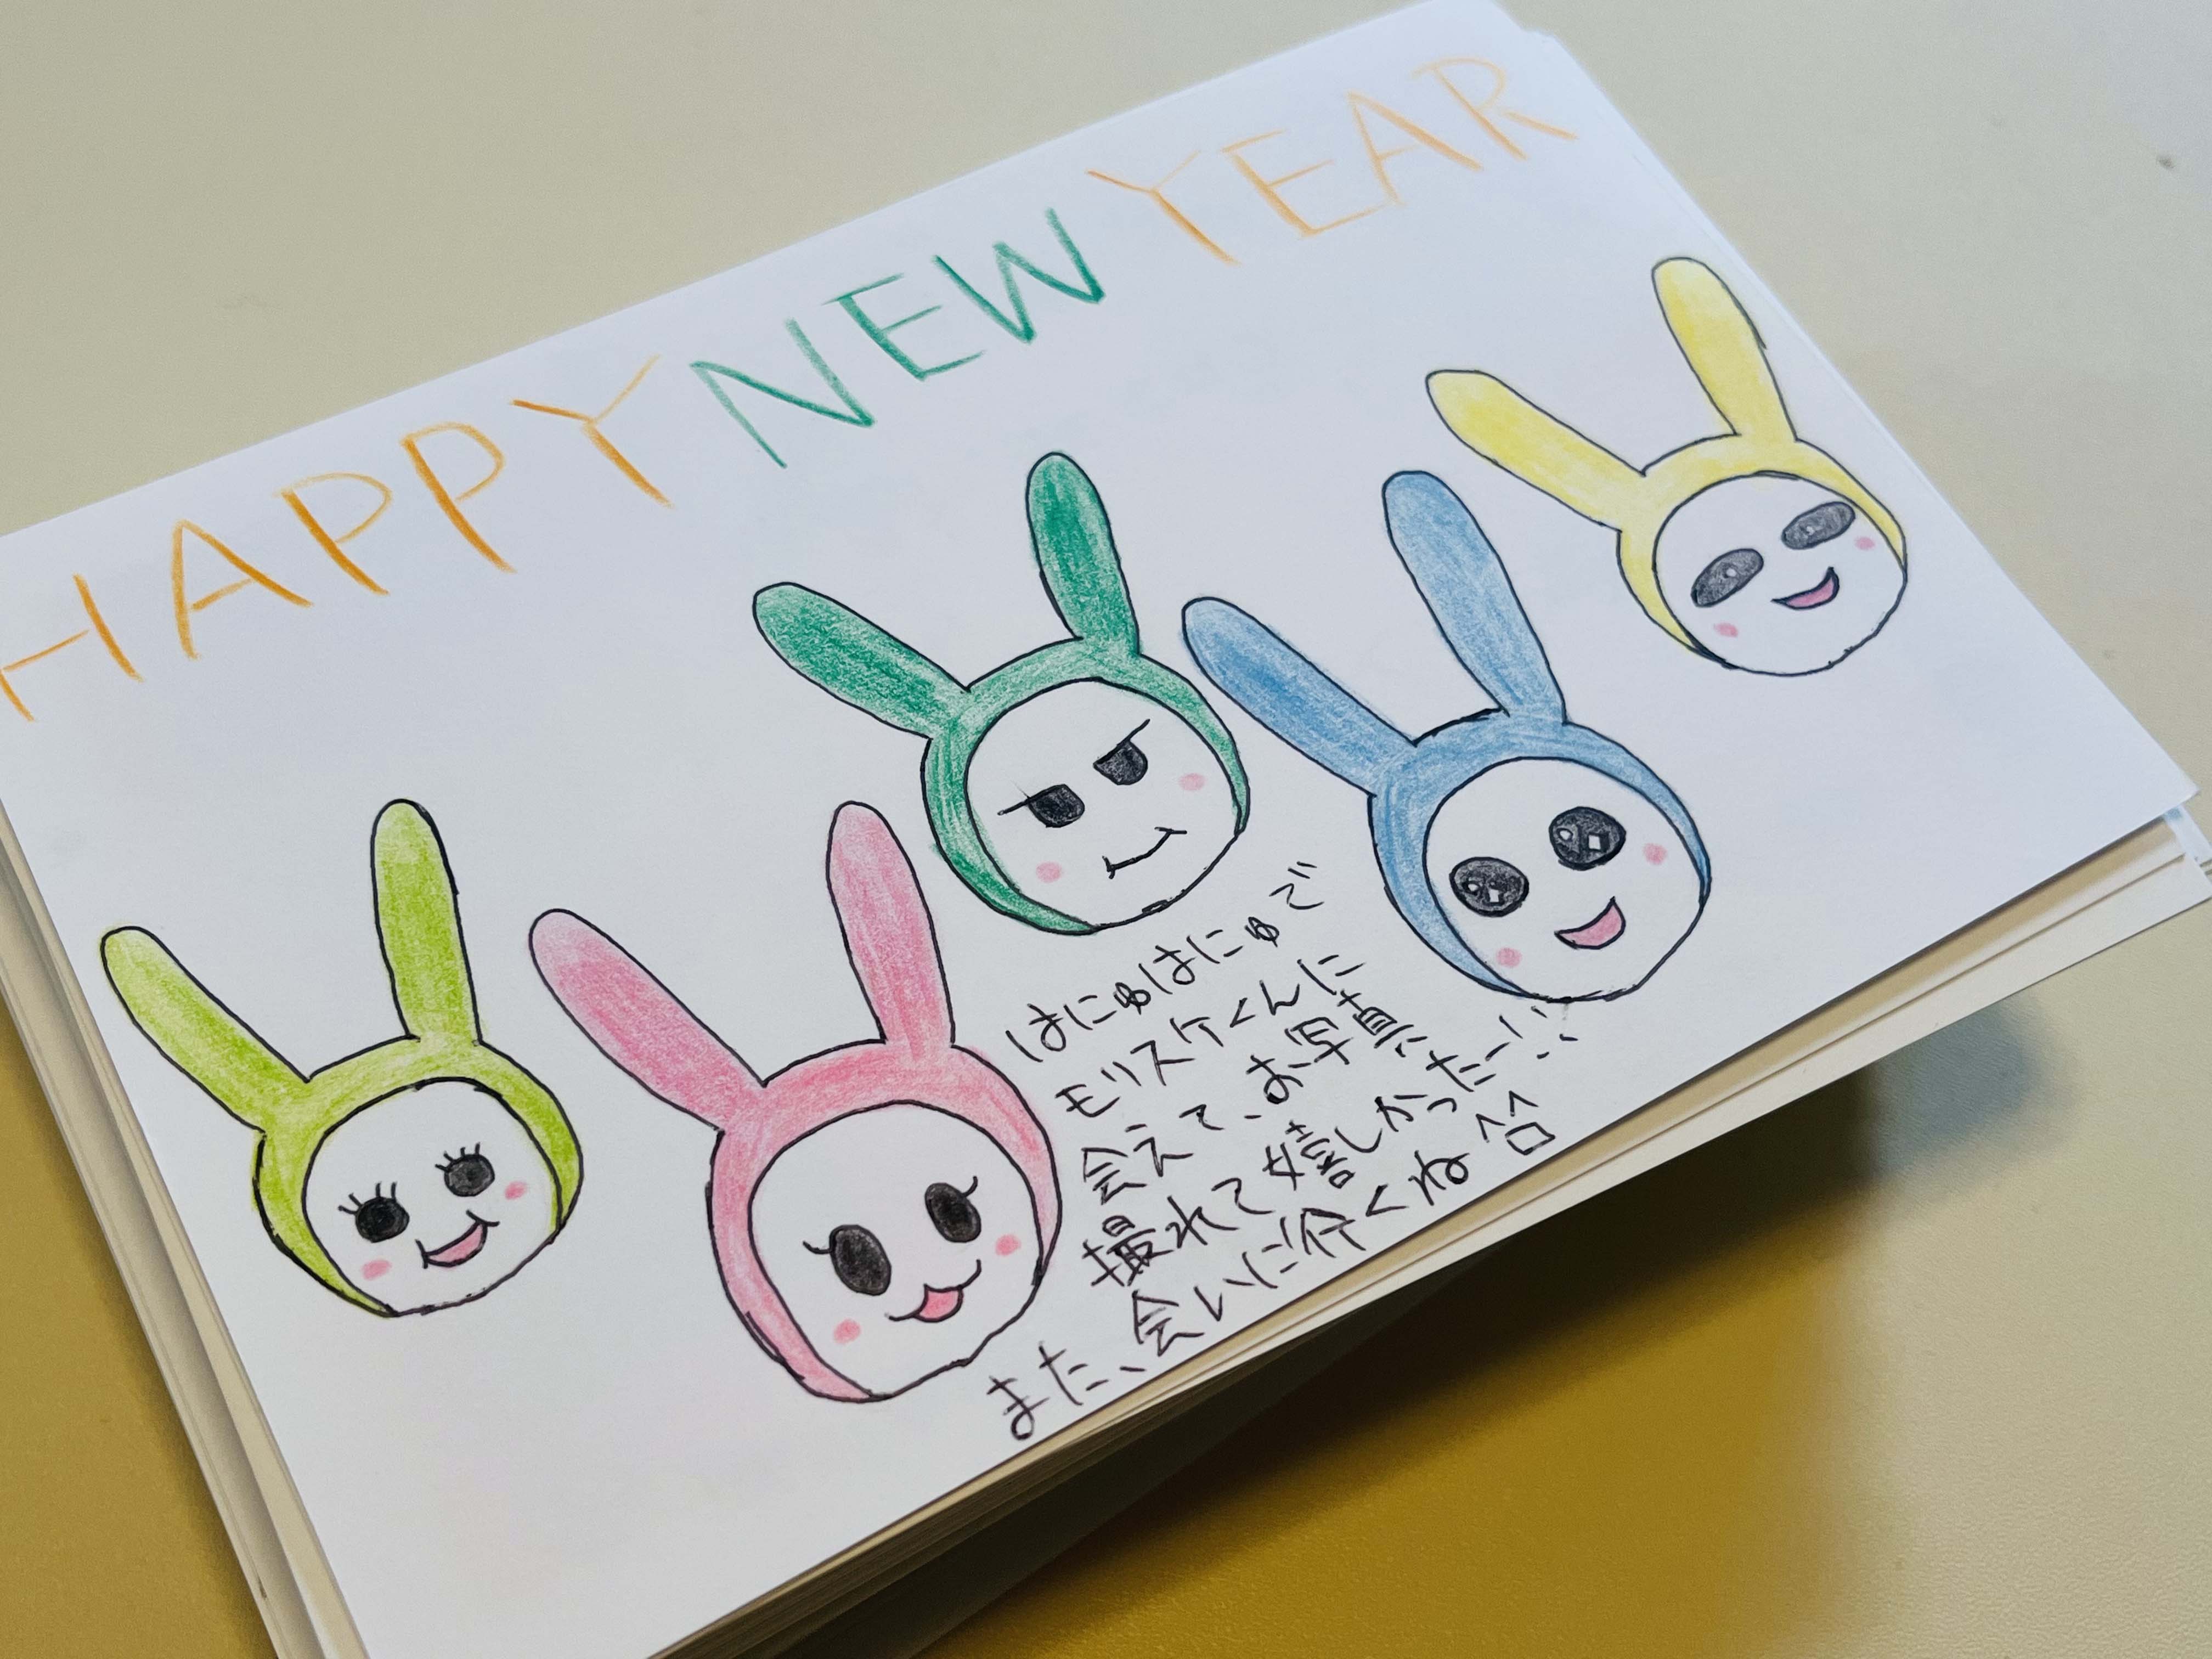 HAPPY NEW YEAR
はにゅはにゅで
モリスケくんに
会えて、お写真
撮れて嬉しかったー!!
また、会いに行くね^□^